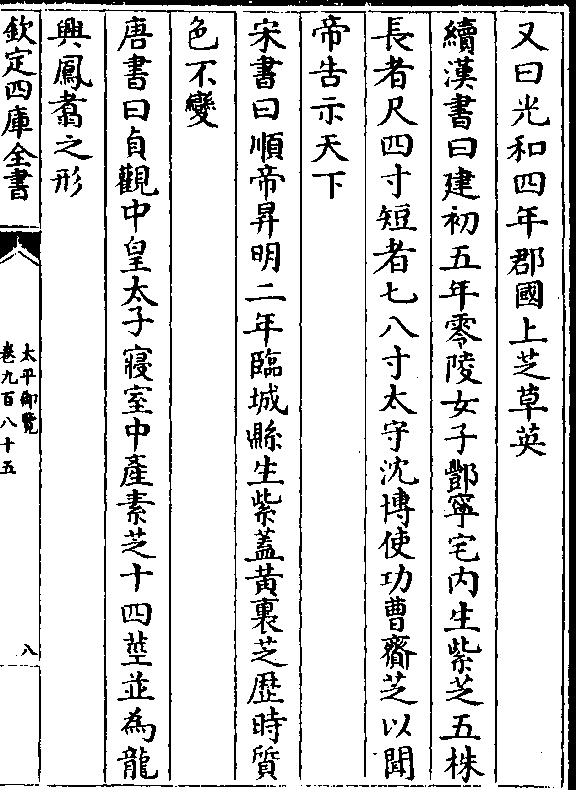 又曰光和四年郡國上芝草英
續漢書曰建初五年零陵女子酆寜宅内生紫芝五株
長者尺四寸短者七八寸太守沈博使功曹齎芝以聞
帝告示天下
宋書曰順帝昇明二年臨城縣生紫蓋黄裏芝歴時質
色不變
唐書曰貞觀中皇太子寢室中產素芝十四莖並為龍
興鳳翥之形
欽定四庫全書
太平御覽
卷九百八十五
八